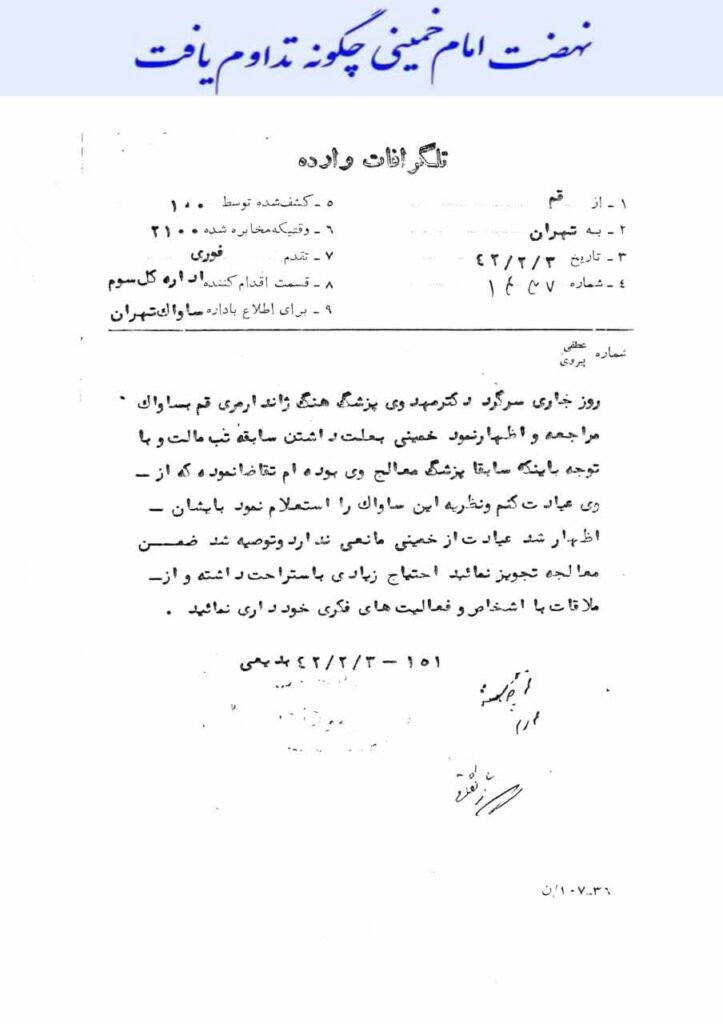 نهضت امام خمینی چگونه تداوم یافت
تلگرافات وارده
۱ ـ از قم
۵ ـ کشف‌شده توسط ۱۰۰
۲ ـ به تهران
۶ ـ وقتیکه مخابره شده ۲۱۰۰
۳ ـ تاریخ ۴۲/۲/۳
۷ ـ تقدم فوری
۴ ـ شماره
۸ ـ قسمت اقدام کننده اداره کل سوم
۹ ـ برای اطلاع باداره ساواک تهران
شماره عطفی
پیروی
روز جاری سرگرد دکتر مهدوی پزشگ هنگ ژاندارمری قم بساواک
مراجعه و اظهارنمود خمینی بعلت داشتن سابقه تب مالت و با
توجه باینکه سابقا پزشگ معالج وی بوده ام تقاضانموده که از ـ
وی عیادت کنم ونظریه این ساواک را استعلام نمود بایشان ـ
اظهار شد عیادت از خمینی مانعی ندارد وتوصیه شد ضمـــن
معالجه تجویز نمائید احتیاج زیادی باستراحت داشته و ازـ
ملاقات با اشخاص و فعالیت های فکری خودداری نمائید .
۱۵۱ – ۴۲/۲/۳ بدیعی
۳۶-۱۰۷/ن